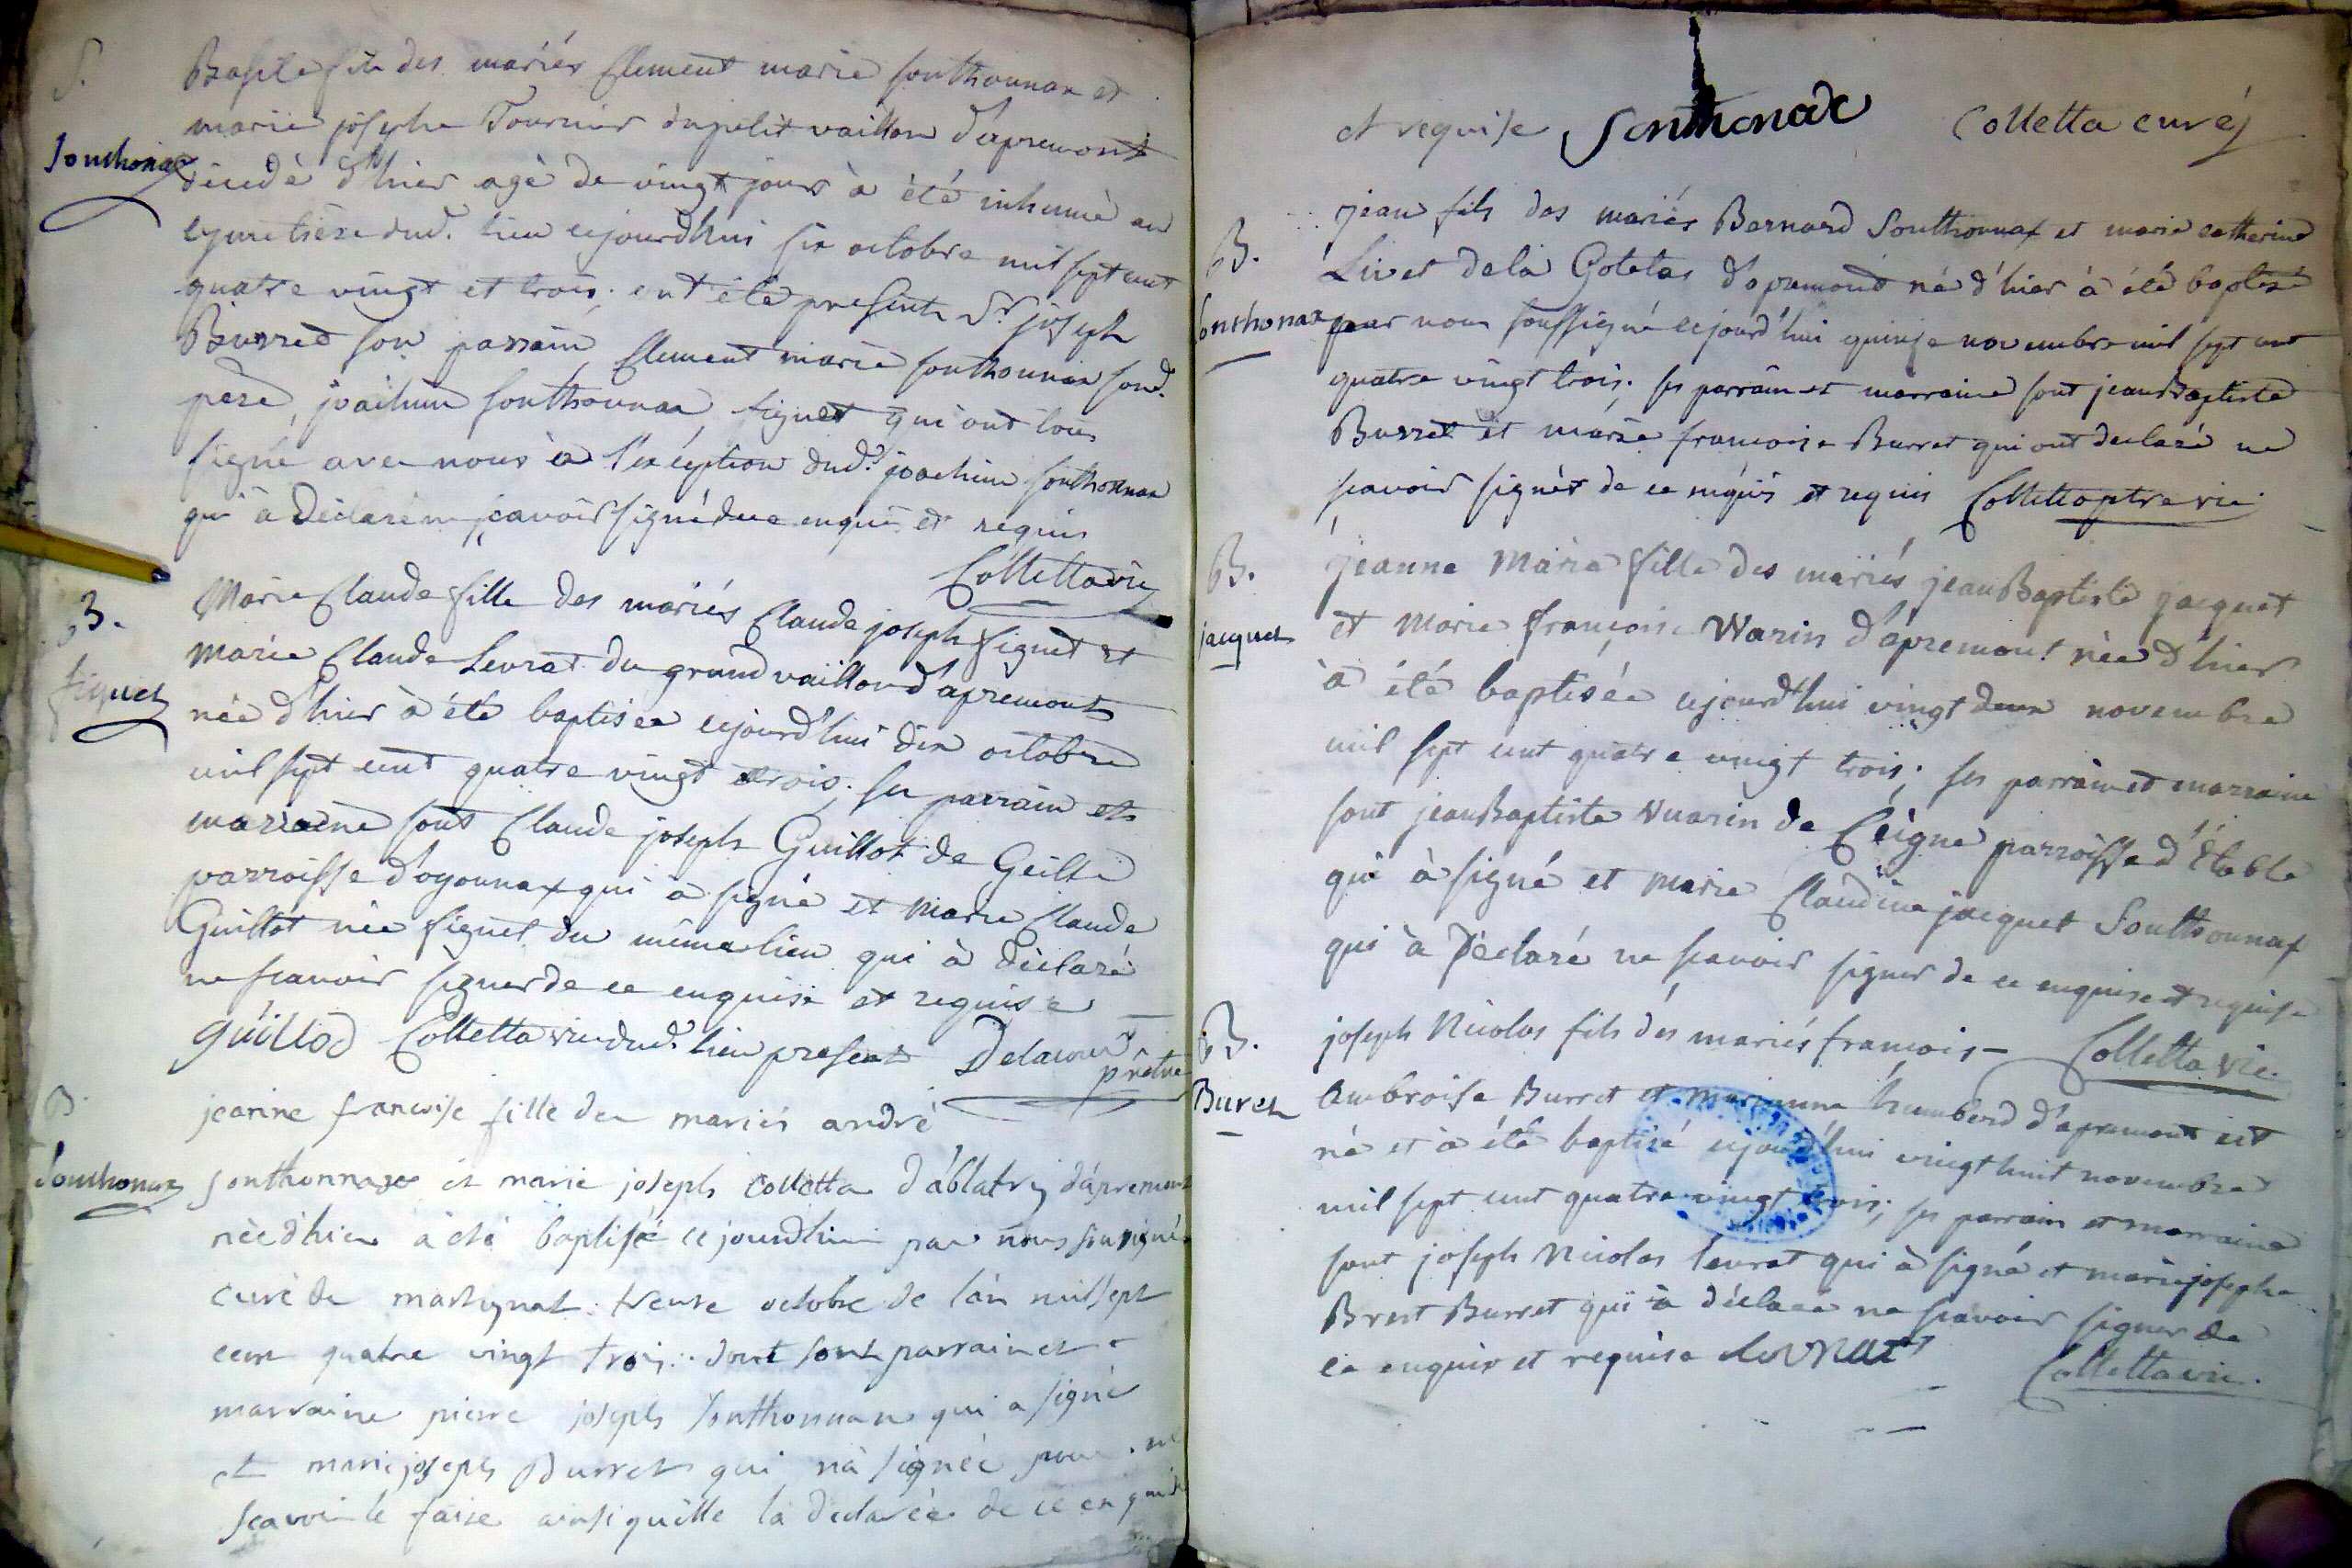 S.
Sonthonax
Basile fils des mariés Clement marie sonthonnax et
marie josephe Tournier du petit vaillon d'apremont
décedé d'hier agé de vingt jours à été inhumé au
cymetière dud. lieu cejourdhui six octobre mil sept cent
quatre vingt et trois. ont été present Sr joseph
Burret son parrain, Clement marie sonthonnax sond.
pere, joachim sonthonnax, figuet qui ont tous
signé avec nous à l'exception dud. joachim sonthonnax
qui à déclaré ne sçavoir signé de ce enquis et requis
Colletta vic
B.
figuet
Marie Claude fille des mariés Claude joseph figuet et
marie Claude Levrat du grand vaillon d'apremont
née d'hier à été baptisée cejourd'hui dix octobre
mil sept cent quatre vingt trois; ses parrain et
marraine sont Claude joseph Guillot de Geilles
parroisse d'oyonnax qui à signé et marie Claude
Guillot née figuet du même lieu qui à déclaré
ne scavoir signer de ce enquise et requise
guillod Colletta vic dud. lieu present Delacour
prêtre
B.
Sonthonax
jeanne francoise fille des mariés andré
sonthonnax et marie joseph colletta d'ablatrix d'apremont
née d'hier à été baptisée cejourdhui par nous soussigné
curé de martignat trense octobre de l'an mil sept
cent quatre vingt trois: dont sont parrain et
marraine pierre joseph sonthonnax qui a signé
et marie joseph Burret qui n'à signée pour ne
scavoir le faire ainsi qu'elle la declarée de ce enquise
et requise Sonthonax Colletta curé
B.
Sonthonax
jean fils des mariés Bernard Sonthonnax et marie catherine
Livet de la Gotetas d'apremont né d'hier à été baptisé
par nous soussigné cejourd'hui quinse novembre mil sept cent
quatre vingt trois; ses parrain et marraine sont jean Baptiste
Burret et marie francoise Burret qui ont declaré ne
scavoir signér de ce enquis et requis Colletta ptre vic
B.
jacquet
jeanne Marie fille des mariés jean Baptiste jacquet
et Marie françoise Warin d'apremont née d'hier
à été baptisée cejourdhui vingt deux novembre
mil sept cent quatre vingt trois; ses parrain et marraine
sont jean Baptiste Vuarin de Ceigne parroisse d'Étable
qui à signé et marie Claudine jacquet Sonthonnax
qui à déclaré ne scavoir signer de ce enquise et requise
Colletta vic.
B.
Buret
joseph Nicolas fils des mariés francois
Ambroise Burret et marianne humberd d'apremont est
né et à été baptisé cejourd'hui vingt huit novembre
mil sept cent quatre vingt trois; ses parrain et marraine
sont joseph Nicolas levrat qui à signé et marie josephe
Brut Burret qui à déclaré ne scavoir signer de
ce enquis et requise Levrat
Colletta vic.